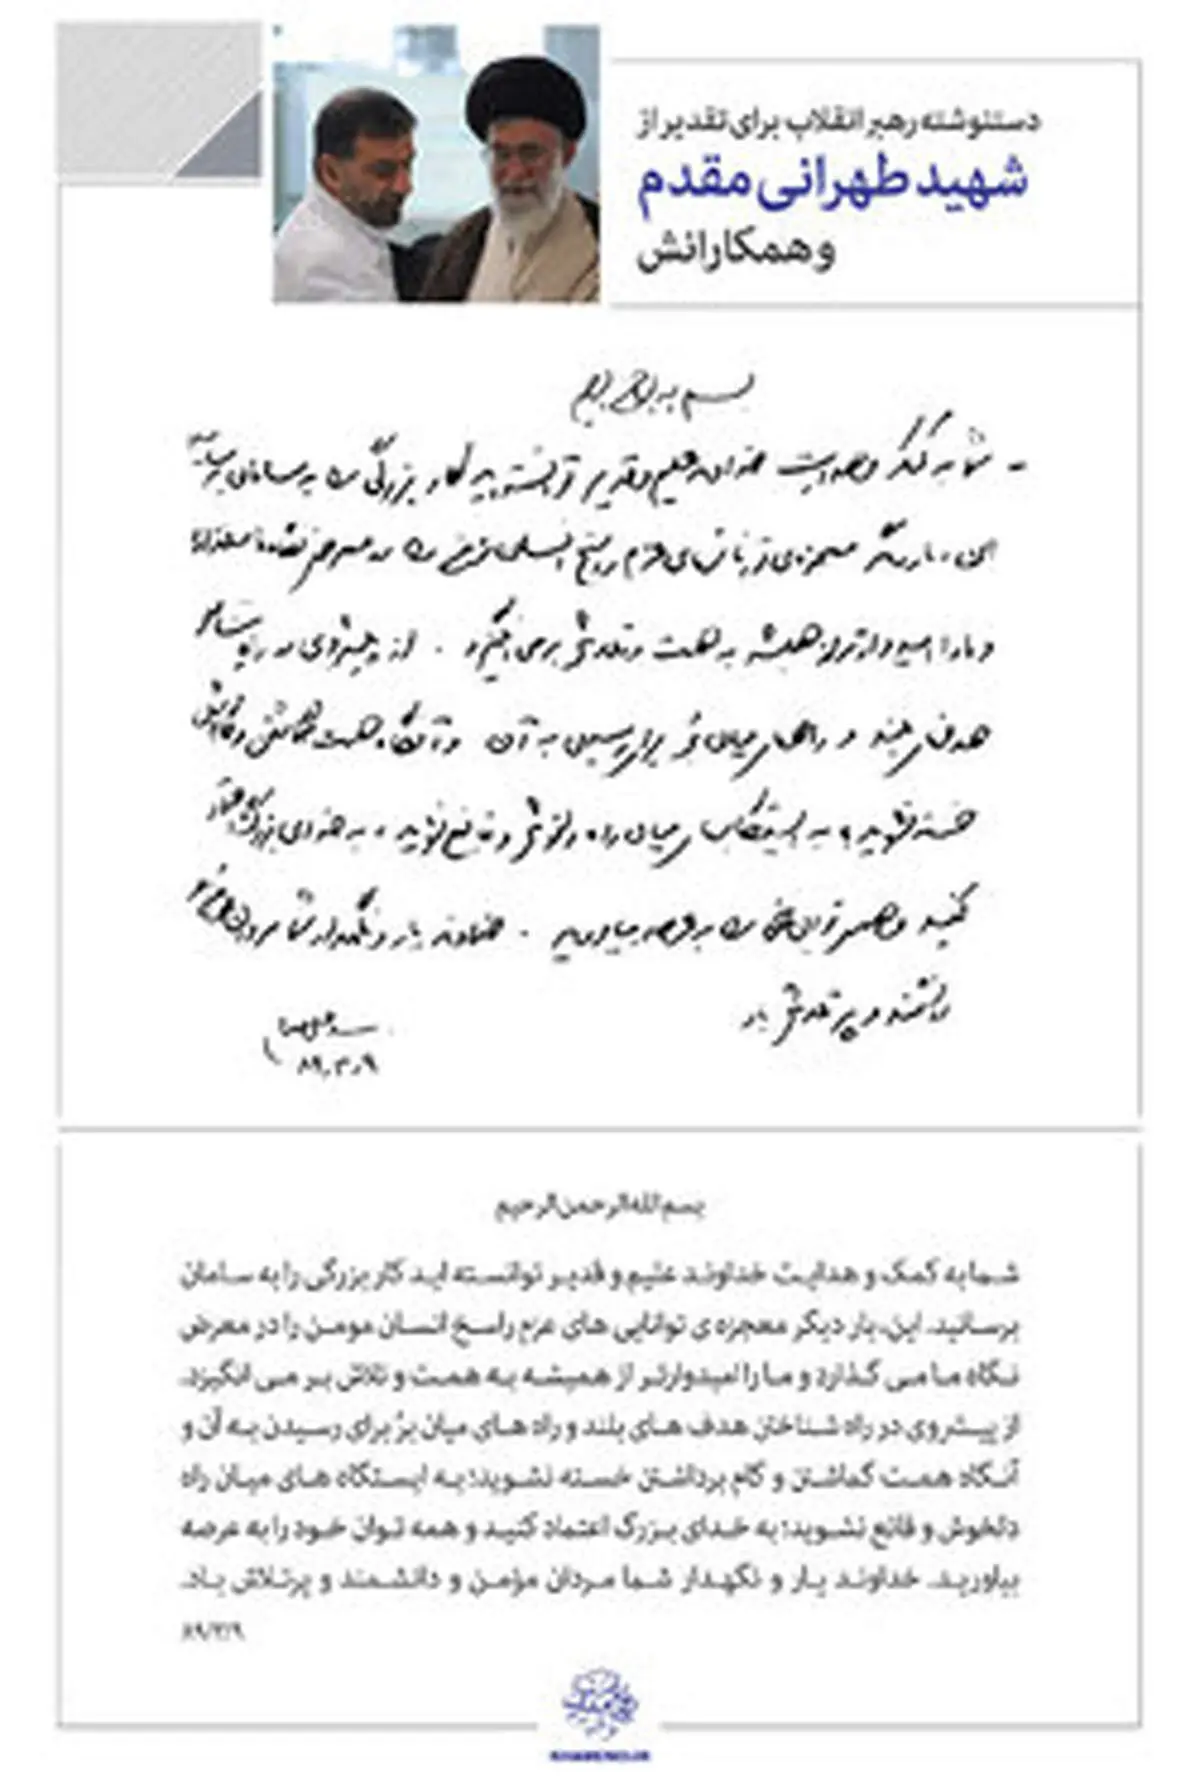 دستنوشته رهبر انقلاب برای تقدیر از
شهید طهرانی مقدم
و همکارانش
شما به کمک و هدایت خدای علیم و قدیر توانسته‌اید کار بزرگی را به سامان برسانید
این، بار دیگر معجزه‌ی توانایی‌های عزم راسخ انسان مومن را در معرض نگاه ما میگذارد
و ما را امیدوارتر از همیشه به همت و تلاش برمی‌انگیزد. از پیشروی در راه شناختن
هدف‌های بلند و راه‌های میان‌بُر برای رسیدن به آن و آنگاه همت گماشتن و گام برداشتن
خسته نشوید؛ به ایستگاههای میان راه دلخوش و قانع نشوید؛ به خدای بزرگ اعتماد
کنید و همه توان خود را به عرصه بیاورید. خداوند یار و نگهدار شما مردان مؤمن و
دانشمند و پرتلاش باد
۸۹٫۳٫۹
بسم الله الرحمن الرحیم
شما به کمک و هدایت خداوند علیم و قدیر توانسته اید کار بزرگی را به سامان
برسانید. این، بار دیگر معجزه ی توانایی های عزم راسخ انسان مومن را در معرض
نگاه ما می گذارد و ما را امیدوارتر از همیشه به همت و تلاش بر می انگیزد.
از پیشروی در راه شناختن هدف های بلند و راه های میان بُر برای رسیدن به آن و
آنگاه همت گماشتن و گام برداشتن خسته نشوید؛ به ایستگاه های میان راه
دلخوش و قانع نشوید؛ به خدای بزرگ اعتماد کنید و همه توان خود را به عرصه
بیاورید. خداوند یار و نگهدار شما مردان مؤمن و دانشمند و پرتلاش باد.
۸۹/۳/۹
KHAMENEI.IR